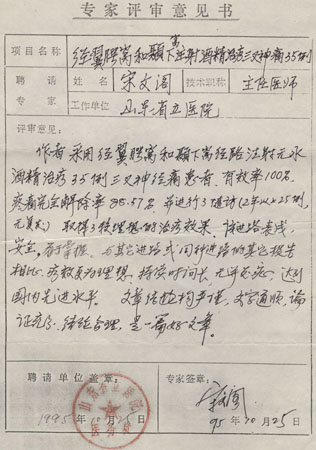 专家评审意见书
项目名称 经翼腭窝和颞下窝注射酒精治疗三叉神经痛35例
聘请 姓名 宋文阁 技术职称 主任医师
专家 工作单位 山东省立医院
评审意见：
作者采用经翼腭窝和颞下窝经路注射无水
酒精治疗35例三叉神经痛患者，有效率100%，
疼痛完全解除率 88.57% 并进行了随访(2年以上25例，
无复发) 取得了较理想的治疗效果。该进路安全，
安全，易于掌握，与其它进路或同种进路的其它报告
相比，疗效更为理想，持续时间长，无并发症，达到
国内先进水平。文章结构严谨，文字通顺，论
证充分，结论合理，是一篇好文章。
聘请单位盖章：
专家签章：
1995年10月25日
95年10月25日